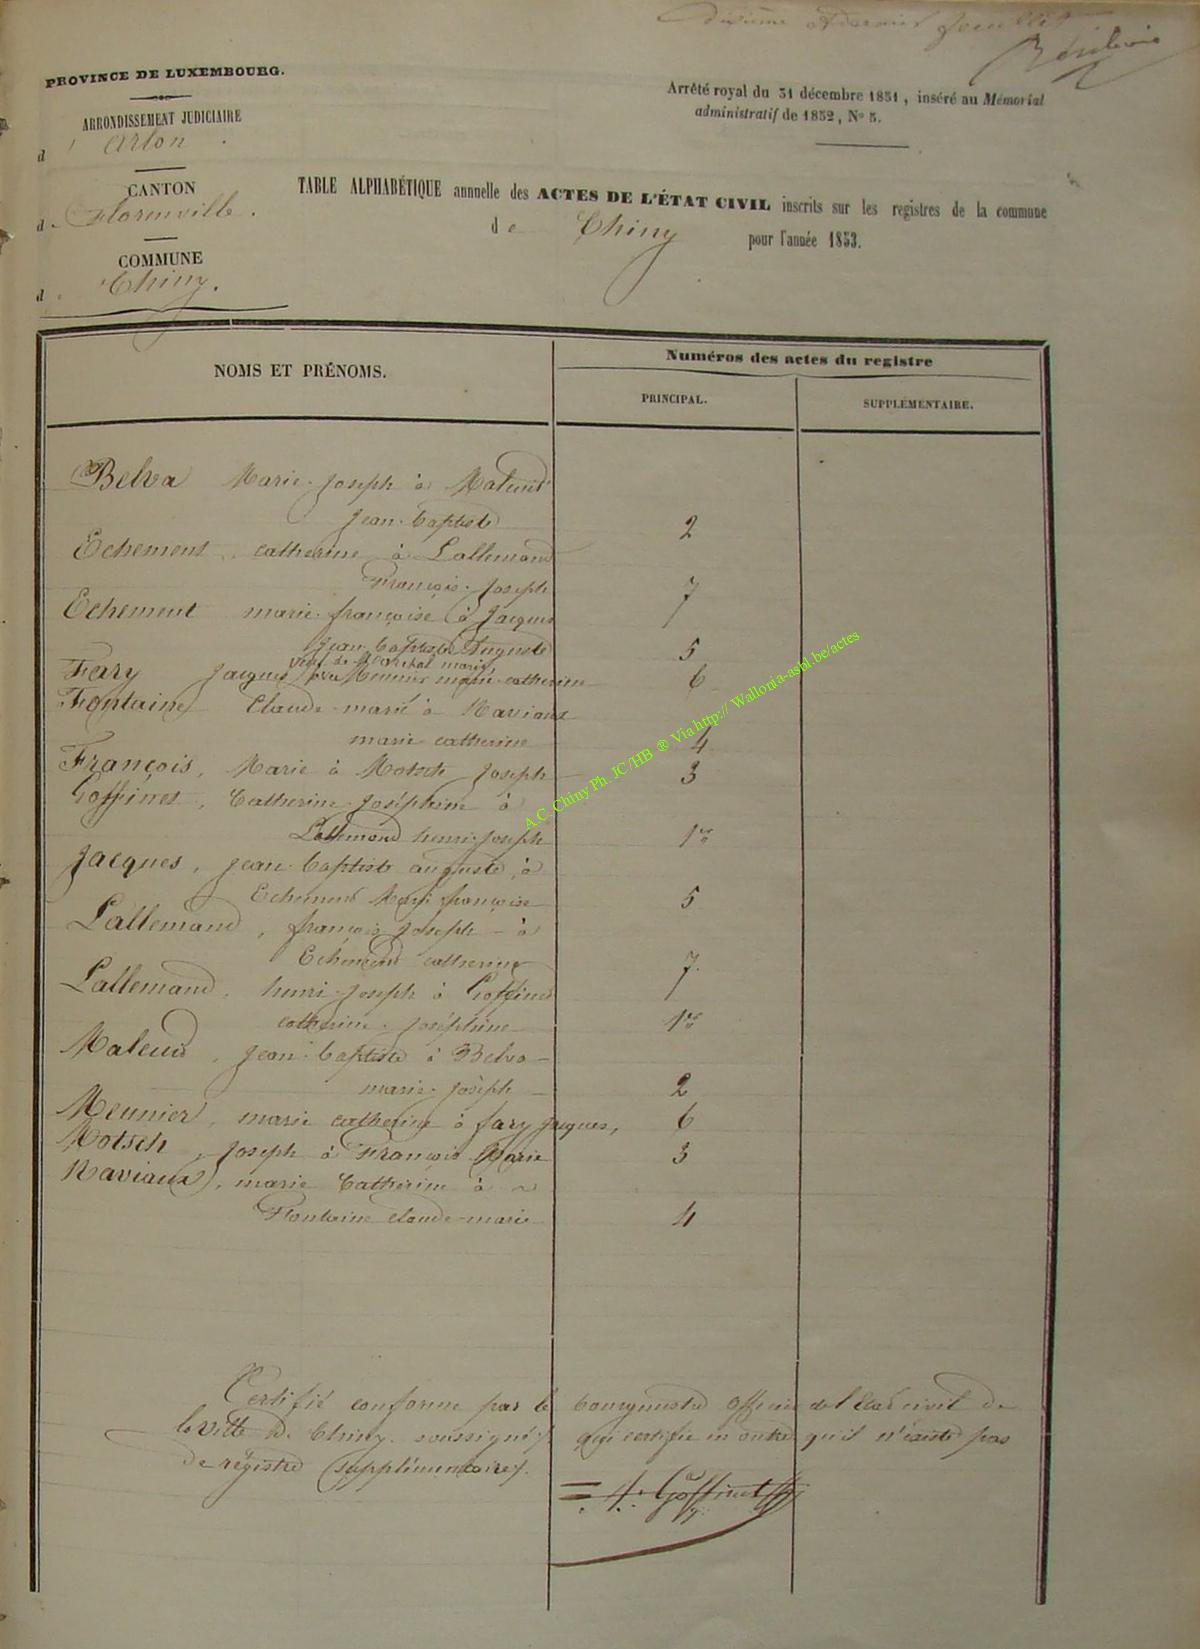 dixième et dernier feuillet
PROVINCE DE LUXEMBOURG.
Arrêté royal du 31 décembre 1851, inséré au Mémorial
administratif de 1852, No 5.
ARRONDISSEMENT JUDICIAIRE
d'Arlon.
CANTON
de Florenville.
COMMUNE
de Chiny.
TABLE ALPHABÉTIQUE annuelle des ACTES DE L'ÉTAT CIVIL inscrits sur les registres de la commune
de Chiny pour l'année 1853.
NOMS ET PRÉNOMS.
Numéros des actes du registre
PRINCIPAL.
SUPPLÉMENTAIRE.
Belva Marie-Joseph à Maleud
Jean-baptiste 2
Echement, catherine à Lallemand
François-Joseph 7
Echement marie-françoise à Jacques
Jean-baptiste Auguste 5
veuf de Maréchal marie
Fary Jacques à Meunier marie-catherine 6
Fontaine Claude-marie à Naviaux
marie catherine 4
François, Marie à Motsch Joseph 3
Goffinet, Catherine-Joséphine à
Lallemand henri-Joseph 1er
Jacques, Jean-baptiste auguste, à
Echement Marie françoise 5
Lallemand, françois Joseph - à
Echement catherine 7.
Lallemand, henri-Joseph à Goffinet
catherine-Joséphine 1er
Maleud, Jean-baptiste à Belva
marie-Joseph 2
Meunier, marie catherine à fary Jacques, 6
Motsch, Joseph à François Marie 3
Naviaux, marie Catherine à
Fontaine claude-marie 4
Certifié conforme par le bourgmestre officier de l'Etat civil de
la ville de Chiny soussigné, qui certifie en outre qu'il n'existe pas
de registre supplémentaire.
Goffinet
A.C. Chiny Ph. JC/HB ® Via http:// Wallonia-asbl.be/actes